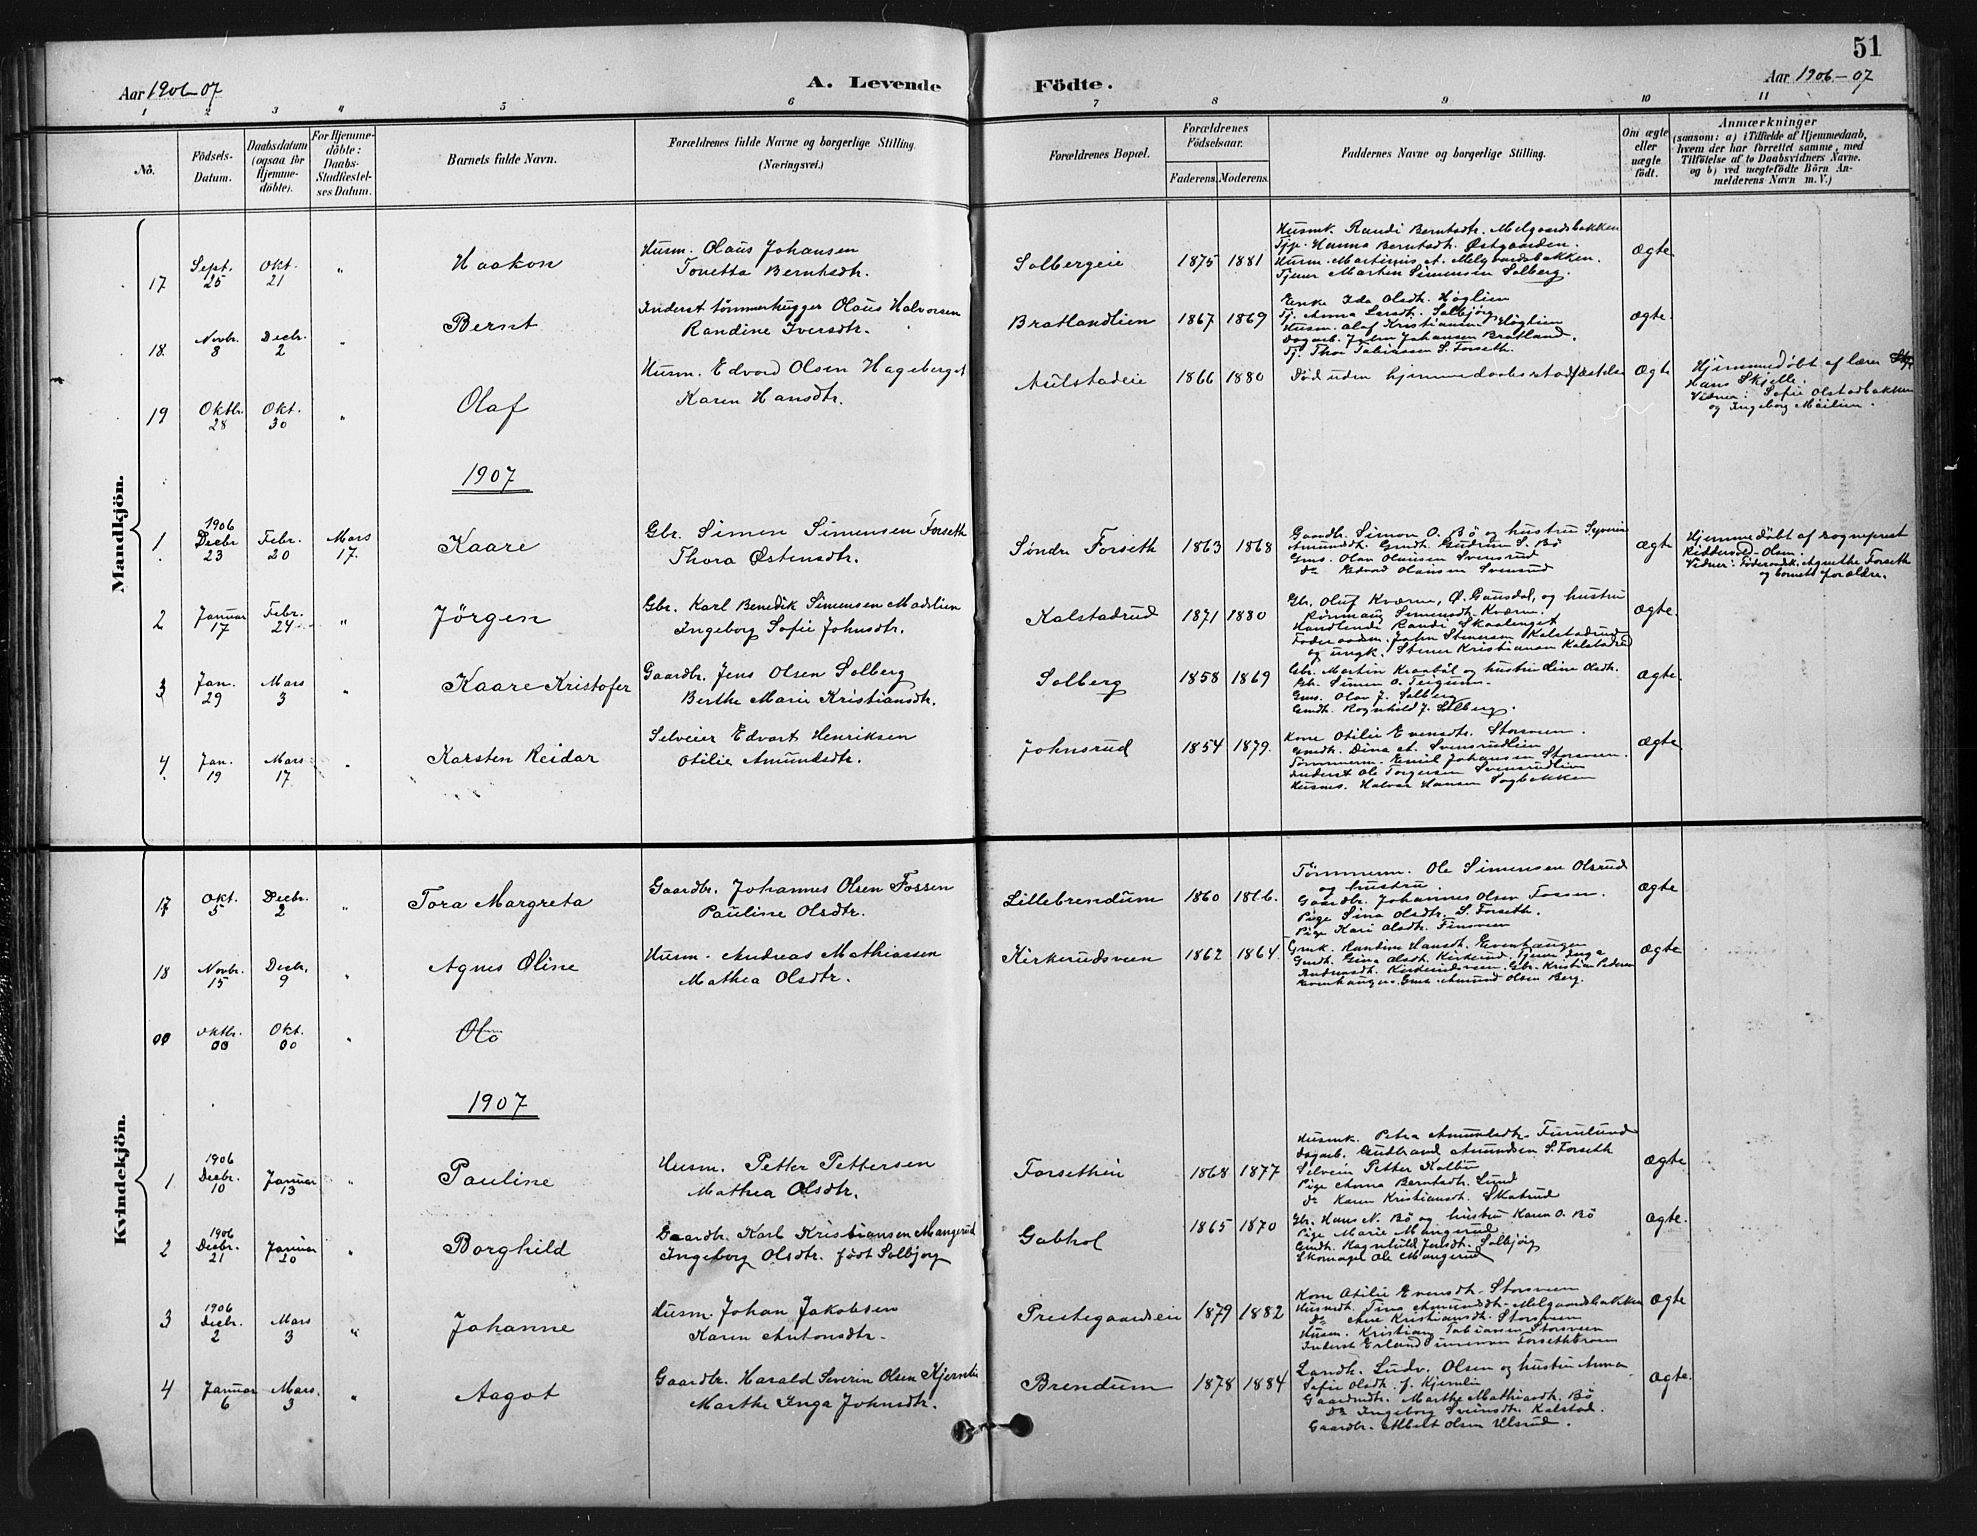 51
Aar 1906-07
A. Levende
Födte.
Aar 1906-07
1 2 3 4 5 6 7 8 9 10 11
No.
Födsels-Datum.
Daabsdatum (ogsaa for Hjemme-döbte).
For Hjemme-döbte: Daabs-Stadfæstel-ses Datum.
Barnets fulde Navn.
Forældrenes fulde Navne og borgerlige Stilling. (Næringsvei.)
Forældrenes Bopæl.
Forældrenes Födselsaar.
Faderens. Moderens.
Faddernes Navne og borgerlige Stilling.
Om ægte eller uægte födt.
Anmærkninger
(saasom: a) i Tilfælde af Hjemmedaab, hvem der har forrettet samme, med Tilföielse af to Daabsvidners Navne. og b) ved uægtefödte Börn An-melderens Navn m. V.)
Mandkjön.
17 Sept. 25 Okt. 21 " Haakon
Husm. Olaus Johansen
Tonetta Berntsdtr.
Solbergeie 1875 1881
Husmk. Randi Berntsdtr. Melgaardsbakken
Tjp. Hanna Berntsdtr. Østgaarden.
Husm. Martinius A. Melgaardsbakken.
Tjener Martin Simensen Solberg.
Ægte
18. Novbr. 8 Decbr. 2 " Bernt
Inderst tømmerhugger Olaus Halvorsen
Randine Iversdtr.
Bratlandlien 1867 1869
Enke Ida Olsdtr. Høglien
Tj. Anna Larsdtr. Solbjørg
Husm. Olaf Kristiansen Høglien
Dagarb. John Johansen Bratland.
Tj. Thor Tobiassen S. Forseth.
Ægte.
19 Oktbr. 28 Okt. 30 " Olaf
Husm. Edvard Olsen Hageberget
Karen Hansdtr.
Aulstadeie 1866 1880
Død uden hjemmedaabsstadfæstelse
Ægte
Hjemmedøbt af lærer
Hans Skjelle.
Vidner: Sofie Olstadbakken
og Ingeborg Moilien.
1907
1 1906 Decbr 23 Febr. 20 Mars 17. Kaare
Gbr. Simen Simensen Forseth
Thora Østensdtr.
Søndre Forseth 1863 1868
Gaardbr. Simon O. Bø og hustru Syverine
Amundsdt. Gmdt. Gudrun S. Bø
Gms. Olav Olausen Svensrud
do Edvard Olausen Svensrud
Ægte
Hjemmedøbt af sogneprest
Riddervold-Olsen.
Vidner: Føderaadsk. Agnethe Forseth
og barnets forældre.
2 Januar 17 Febr. 24 " Jörgen
Gbr. Karl Benedik Simensen Madslien
Ingeborg Sofie Johnsdtr.
Kalstadrud 1871 1880
Gbr. Oluf Kværne, Ø. Gausdal, og hustru
Rønnaug Simensdtr. Kværne.
Handlende Randi Skaalenget
Føderaadsm. John Stenersen Kalstadrud
og ungk. Stener Kristiansen Kalstadrud
Ægte.
3 Jan. 29 Mars 3 " Kaare Kristofer
Gaardbr. Jens Olsen Solberg
Berthe Marie Kristiansdtr.
Solberg 1858 1869
Gbr. Martin Kraabøl og hustru Eline Olsdt.
Gbr. Simen O. Teigum.
Gms. Olav J. Solberg
Gmdt. Ragnhild J. Solberg.
Ægte.
4 Jan. 19 Mars 17 " Karsten Reidar
Selveier Edvart Henriksen
Otilie Amundsdtr.
Johnsrud 1854 1879.
Kone Otilie Evensdtr. Storsveen.
Gmdt. Dina A. Svensrudlien
Tømmerm. Emil Johansen Storsveen.
Inderst Ole Torgersen Svensrudlien
Husms. Halvor Hansen Sagbakken
Ægte
Kvindekjön.
17 Okt. 5 Decbr. 2 " Tora Margreta
Gaardbr. Johannes Olsen Fossen
Pauline Olsdtr.
Lillebrendum 1860 1866.
Tömmerm. Ole Simensen Olsrud
og hustru.
Gaardbr. Johannes Olsen Fossen.
Pige Sina Olsdtr. S. Forseth.
Pige Kari Olsdtr. Finsveen
Ægte
18 Novbr. 15 Decbr. 9 " Agnes Oline
Husm. Andreas Mathiassen
Mathea Olsdtr.
Kirkerudsveen 1862 1864.
Gmk. Randine Hansdt. Evenhaugen
Gmdt. Gina Olsdt. Kirkerud. Tjener Inga
Andreasdt. Kirkerudsveen. Gbr. Kristian Pedersen
Evenhaugen. Gms. Amund Olsen Berg.
Ægte
00 Oktbr. 00 Okt. 00 " Olo
1907
1 1906 Decbr. 10 Januar 13 " Pauline
Husm. Petter Pettersen
Mathea Olsdtr.
Forsethlien 1868 1877
Husmk. Petra Amundsdtr. Furulund
Dagarb. Gudbrand Amundsen S. Forseth
Selveier Petter Kolbu
Pige Anna Berntsdtr. Lund
do Karen Kristiansdt. Skatrud
Ægte
2 1906 Decbr. 21 Januar 20 " Borghild
Gaardbr. Karl Kristiansen Mangerud
Ingeborg Olsdtr. født Solbjørg
Gabhol 1865 1870
Gbr. Hans N. Bø og hustru Karen O. Bø
Pige Marie Mangerud
Gmdt. Ragnhild Jensdt. Solbjørg
Skomager Ole Mangerud
Ægte.
3 1906 Decbr. 2 Mars 3 " Johanne
Husm. Johan Jakobsen
Karen Antonsdtr.
Prestegaardseie 1879 1882
Kone Otilie Evensdt. Storsveen
Husmdt. Tina Amundsdt. Melgaardsbakken
do Ane Kristiansdt. Storsveen
Husm. Kristian Tobiasen Storsveen
Inderst Erland Simensen Forsethbroen
Ægte
4 Januar 6 Mars 3 " Aagot
Gaardbr. Harald Severin Olsen Kjernlie
Marthe Inga Johnsdtr.
Brendum 1878 1884
Landh. Ludv. Olsen og hustru Anna
Sofie Olsdt. f. Kjernlie
Gaardmdt. Marthe Mathiasdt. Bø
do Ingeborg Svensdt. Kalstad.
Gaardbr. Albert Olsen Ulsrud.
Ægte.